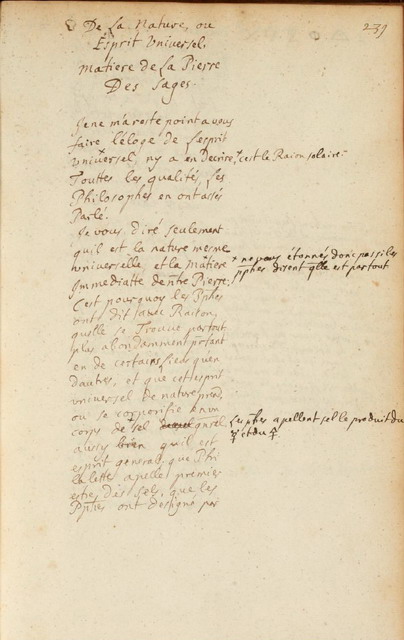 De La Nature, ou
Esprit Universel,
matiere de La Pierre
Des Sages.
231
Je ne mareste point a vous
faire l'éloge de l'esprit
universel, ny a en Decrire
Touttes les qualités, Les
Philosophes en ont assés
Parlé.
Je vous diré seulement
quil est la nature mesme
universelle et la Matiere
Immediatte de ntre Pierre,
C'est pourquoy les Pphes
ont dit avec Raison,
quelle se Trouve partout
plus abondamment pourtant
en de certains lieux quen
dautres, et que cet esprit
universel de nature prend,
ou se corporifie en un
corps de sel
aussy quil est
esprit general, que Phi
la lette apelle premier
estres des sels, que les
Pphes ont designé par
x c'est le Raion solaire.
x ne vous étonnés donc pas si les
pphes disent qlle est partout
Les pphes apellent sel le produit du
et du